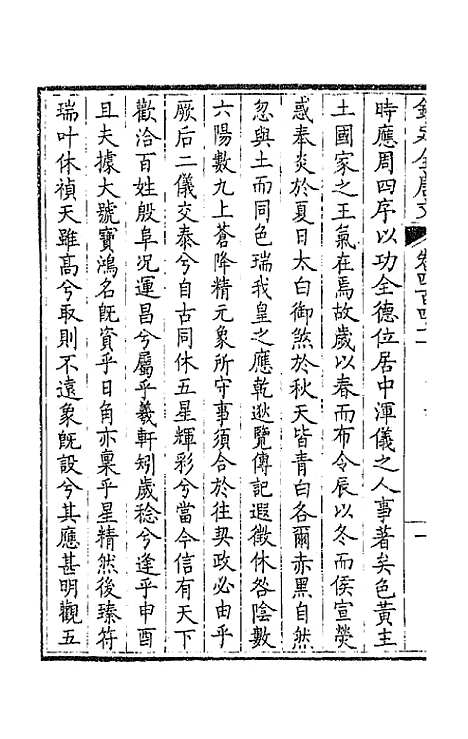 時應周四序以功全德位居中渾儀之人事著矣色黃主
土國家之王氣在焉故歲以春而布令辰以冬而侯宣熒
惑奉炎於夏日太白御煞於秋天皆青白各爾赤黑自然
忽與土而同色瑞我皇之應乾逖覽傳記遐徵休咎陰數
六陽數九上蒼降精元象所守事須合於往契政必由乎
厥后二儀交泰兮自古同休五星輝彩兮當今信有天下
歡洽百姓殷阜況運昌兮屬乎羲軒矧歲稔兮逢乎申酉
且夫據大號寶鴻名既資乎日角亦稟乎星精然後臻符
瑞叶休禎天雖高兮取則不遠象既設兮其應甚明觀五